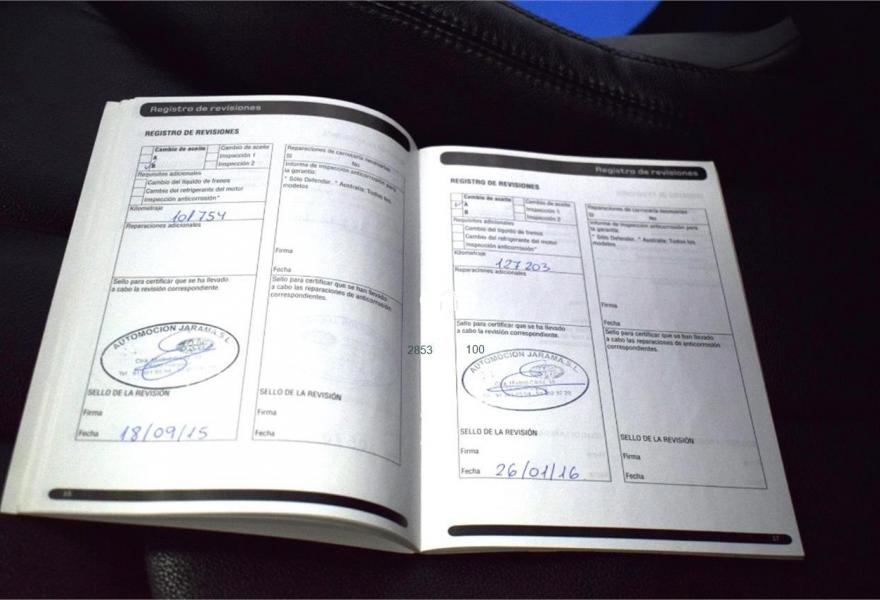 Registro de revisiones
REGISTRO DE REVISIONES
Cambio de aceite
A
B
Cambio de aceite
Inspección 1
Inspección 2
Requisitos adicionales
Cambio del líquido de frenos
Cambio del refrigerante del motor
Inspección anticorrosión*
Kilometraje
101754
Reparaciones adicionales
Sello para certificar que se ha llevado
a cabo la revisión correspondiente.
AUTOMOCION JARAMA, S.L.
SELLO DE LA REVISIÓN
Firma
Fecha 18/09/15
Reparaciones de carrocería necesarias
Sí No
Informe de inspección anticorrosión para
la garantía:
* Sólo Defender. * Australia: Todos los
modelos
Firma
Fecha
Sello para certificar que se han llevado
a cabo las reparaciones de anticorrosión
correspondientes.
SELLO DE LA REVISIÓN
Firma
Fecha
Registro de revisiones
REGISTRO DE REVISIONES
Cambio de aceite
A
B
Cambio de aceite
Inspección 1
Inspección 2
Requisitos adicionales
Cambio del líquido de frenos
Cambio del refrigerante del motor
Inspección anticorrosión*
Kilometraje
127203
Reparaciones adicionales
Sello para certificar que se ha llevado
a cabo la revisión correspondiente.
2853 100
AUTOMOCION JARAMA, S.L.
SELLO DE LA REVISIÓN
Firma
Fecha 26/01/16
Reparaciones de carrocería necesarias
Sí No
Informe de inspección anticorrosión para
la garantía:
* Sólo Defender. * Australia: Todos los
modelos
Firma
Fecha
Sello para certificar que se han llevado
a cabo las reparaciones de anticorrosión
correspondientes.
SELLO DE LA REVISIÓN
Firma
Fecha
17